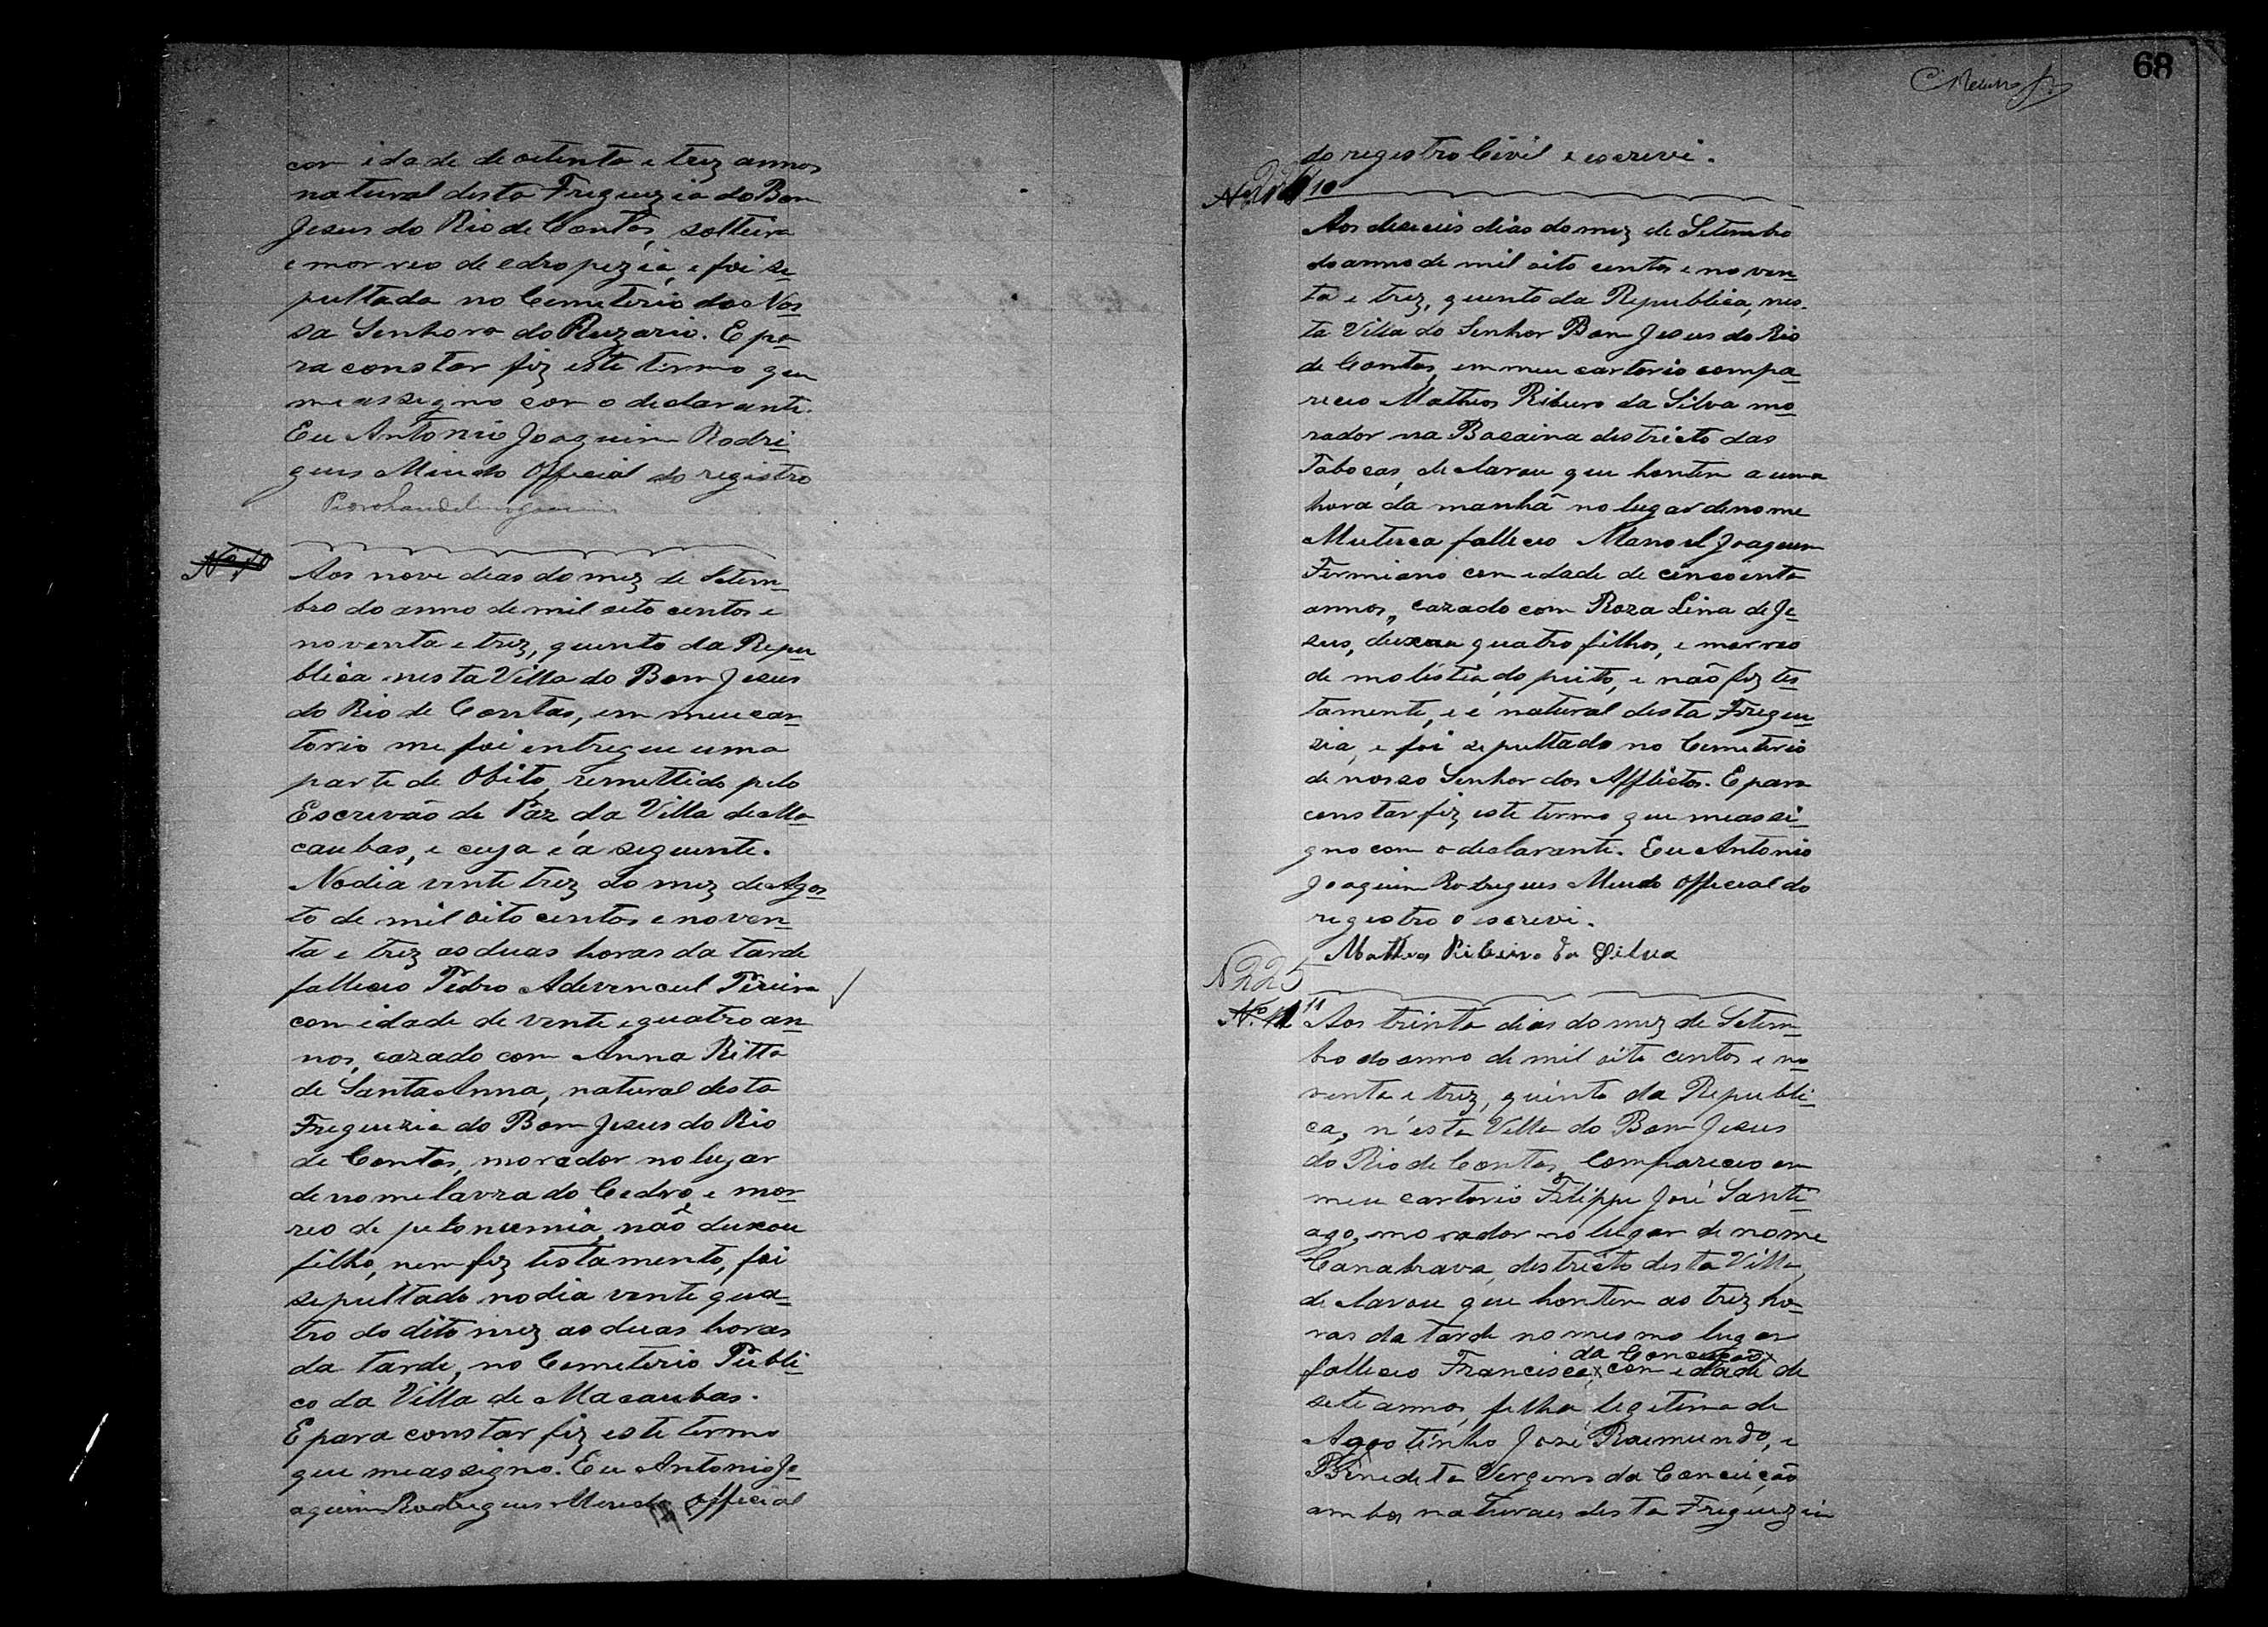 com idade de oitenta e trez annos
natural desta Freguezia do Bom
Jesus do Rio de Contas, solteira
e morreo de edropezia, e foi se
pultada no Cemeterio da Nos
sa Senhora do Ruzario. E pa
ra constar fiz este termo que
me assegno com o declarante.
Eu Antonio Joaquim Rodri
gues Miudo Official do registro
Nº 10
Aos nove dias do mez de Setem
bro do anno de mil oito centos e
noventa e trez, quinto da Repu
blica nesta Villa do Bom Jesus
do Rio de Contas, em meu car
torio me foi entregue uma
parte de Obito, remettido pelo
Escrivão de Paz da Villa de Ma
caubas, e cuja é a seguente.
No dia vinte trez do mez de Agos
to de mil oito centos e noven
ta e trez as duas horas da tarde
falleceo Pedro Pereira
com idade de vinte e quatro an
nos, cazado com Anna Ritta
de Santa Anna, natural desta
Freguezia do Bom Jesus do Rio
de Contas, morador no lugar
de nome lavra do Cedro, e mor
reo de não deixou
filho, nem fez testamento, foi
sepultado no dia vinte qua
tro do dito mez as duas horas
da tarde, no Cemeterio Publi
co da Villa de Macaubas.
E para constar fiz este termo
que me assigno. Eu Antonio Jo
aquim Rodrigues Miudo Official
68
do registro Civil e escrevi.
10
Aos deseseis dias do mez de Setembro
do anno de mil oito centos e noven
ta e trez, quinto da Republica, nes
ta Villa do Senhor Bom Jesus do Rio
de Contas, em meu cartorio compa
receo Matheos Ribeiro da Silva mo
rador na Bocaina districto das
Tabocas, declarou que hontem a uma
hora da manhã no lugar de nome
Mutuca falleceo Manoel Joaquim
Fermiano com edade de cincoenta
annos, cazado com Roza Lina de Je
sus, deixou quatro filhos, e morreo
de molestia do peito, e não fez tes
tamento, e é natural desta Fregue
zia, e foi sepultado no Cemeterio
de nosso Senhor dos Afflictos. E para
constar fiz este termo que me assi
gno com o declarante. Eu Antonio
Joaquim Rodrigues Miudo Official do
registro o escrevi.
Matheos Ribeiro da Silva
N 225
Nº 11 11
Aos trinta dias do mez de Setem
bro do anno de mil oito centos e no
venta e trez, quinto da Republi
ca, n'esta Villa do Bom Jesus
do Rio de Contas, compareceo em
meu cartorio Filippe José Santi
ago, morador no lugar de nome
Canabrava, destricto desta Villa,
declarou que hontem as trez ho
ras da tarde no mesmo lugar
da Conceição
falleceo Francisca x com edade de
sete annos, filha legitima de
Agostinho José Raimundo, e
Benedita Vergens da Conceição
ambos naturaes desta Freguezia